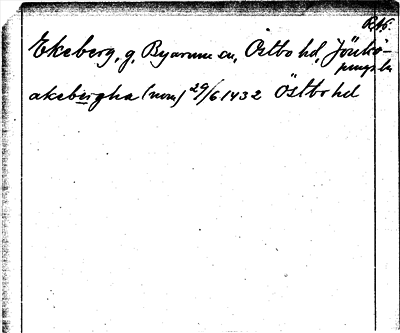 RAP.
Ekeberg, g, Byarum sn, Östbo hd, Jönkö-
pings län
akebergha (nom) 29/6 1432 Östbo hd